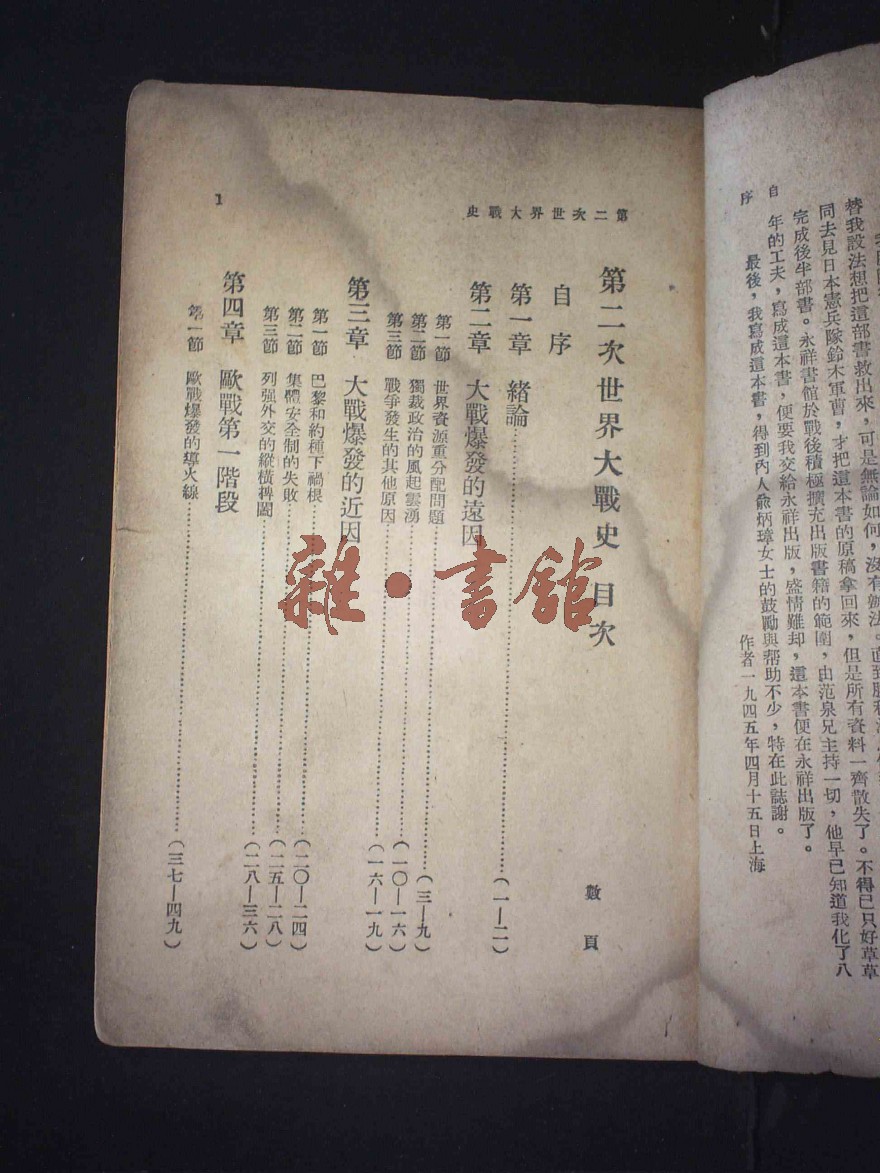 替我設法想把這部書救出來，可是無論如何，沒有辦法。直到勝利
同去見日本憲兵隊鈴木軍曹，才把這本書的原稿拿回來，但是所有資料一齊散失了。不得已只好草草
完成後半部書。永祥書館於戰後積極擴充出版書籍的範圍，由范泉兄主持一切，他早已知道我化了八
年的工夫，寫成這本書，便要我交給永祥出版，盛情難却，這本書便在永祥出版了。
最後，我寫成這本書，得到內人俞炳璋女士的鼓勵與幫助不少，特在此誌謝。
作者一九四五年四月十五日上海
自序
第二次世界大戰史
1
第二次世界大戰史 目次
數頁
自序
第一章 緒論……（一—二）
第二章 大戰爆發的遠因
第一節 世界資源重分配問題……（三—九）
第二節 獨裁政治的風起雲湧……（一〇—一六）
第三節 戰爭發生的其他原因……（一六—一九）
第三章 大戰爆發的近因
第一節 巴黎和約種下禍根……（二〇—二四）
第二節 集體安全制的失敗……（二五—二八）
第三節 列强外交的縱橫捭闔……（二八—三六）
第四章 歐戰第一階段
第一節 歐戰爆發的導火線……（三七—四九）
雜·書館